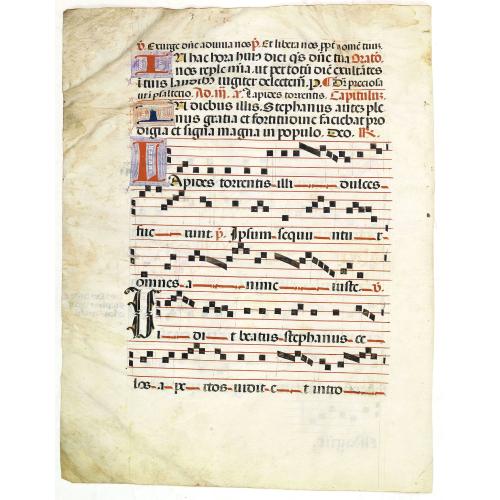 ℣. Exurge dñe adiuva nos ℟. Et libera nos ppt nomē tuū.
In hac hora huiꝰ diei q̄s dñe tua Orato.
nos reple mīa. ut per totū diē exultātes
ī tuis laudibꝰ iugiter delectem̄. P. C̃m preciosa
ut ī psalterio. Ad .iii. a᷑. Lapides torrentis. Capitulum.
In diebus illis. Stephanus autē ple
nus gratia et fortitudine faciebat pro
digia et signa magna in populo. Deo. ℟.
Lapides torrentis illi dulces
fue runt. p̄. Ipsum sequū tur
omnes a nime iuste. ℣.
Vi di t beatus stephanus ce
los a pe rtos vidit e t intro